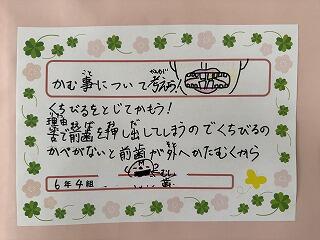 かむ事について考えよう!
くちびるをとじてかもう!
理由
舌で前歯を押し出してしまうのでくちびるの
かべがないと前歯が外へかたむくから
6年4組